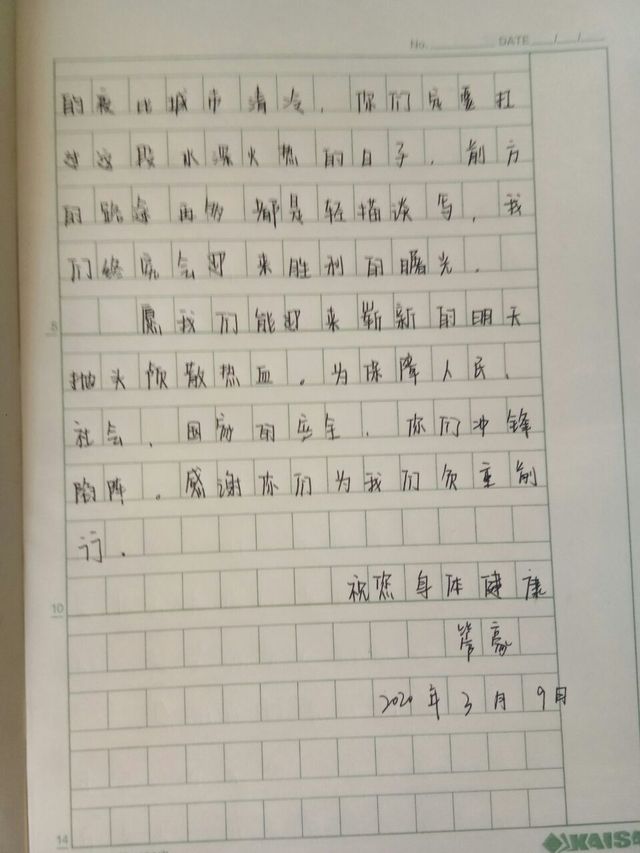 No. DATE / /
的夜比城市清冷，你们完要扛
过这段水深火热的日子，前方
的路途再多都是轻描谈写，我
们终究会迎来胜利的曙光。
5
愿我们能迎来崭新的明天
抛头颅散热血。为保障人民、
社会、国家的安全，你们冲锋
陷阵。感谢你们为我们负重前
行。
祝您身体健康
10
2020年3月9日
14
KAIS